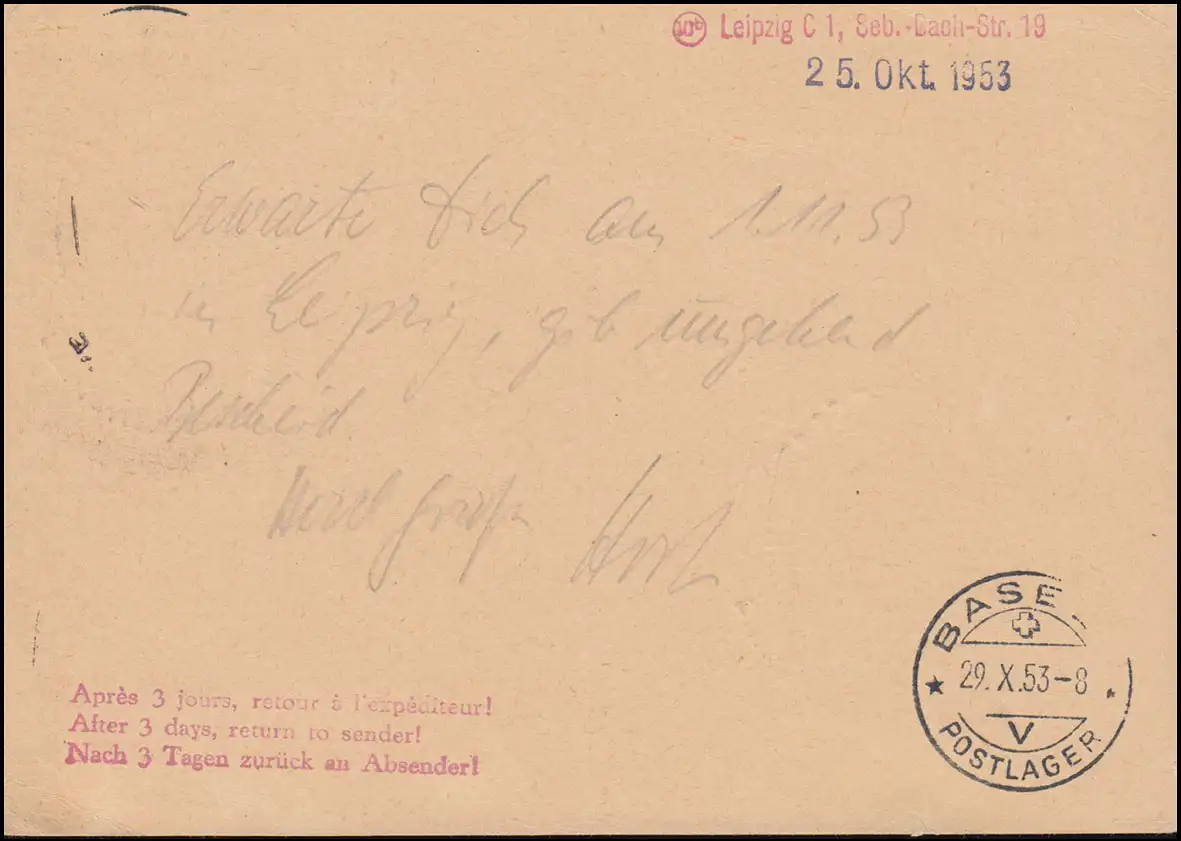 Leipzig C 1, Seb.-Bach-Str. 19
25. Okt. 1953
Erwarte Dich am 1.11.53
in Leipzig, gib umgehend
Bescheid.
Herzl. Grüße Horst
Après 3 jours, retour à l'expéditeur!
After 3 days, return to sender!
Nach 3 Tagen zurück an Absender!
BASE
29. X. 53-8
V
POSTLAGER